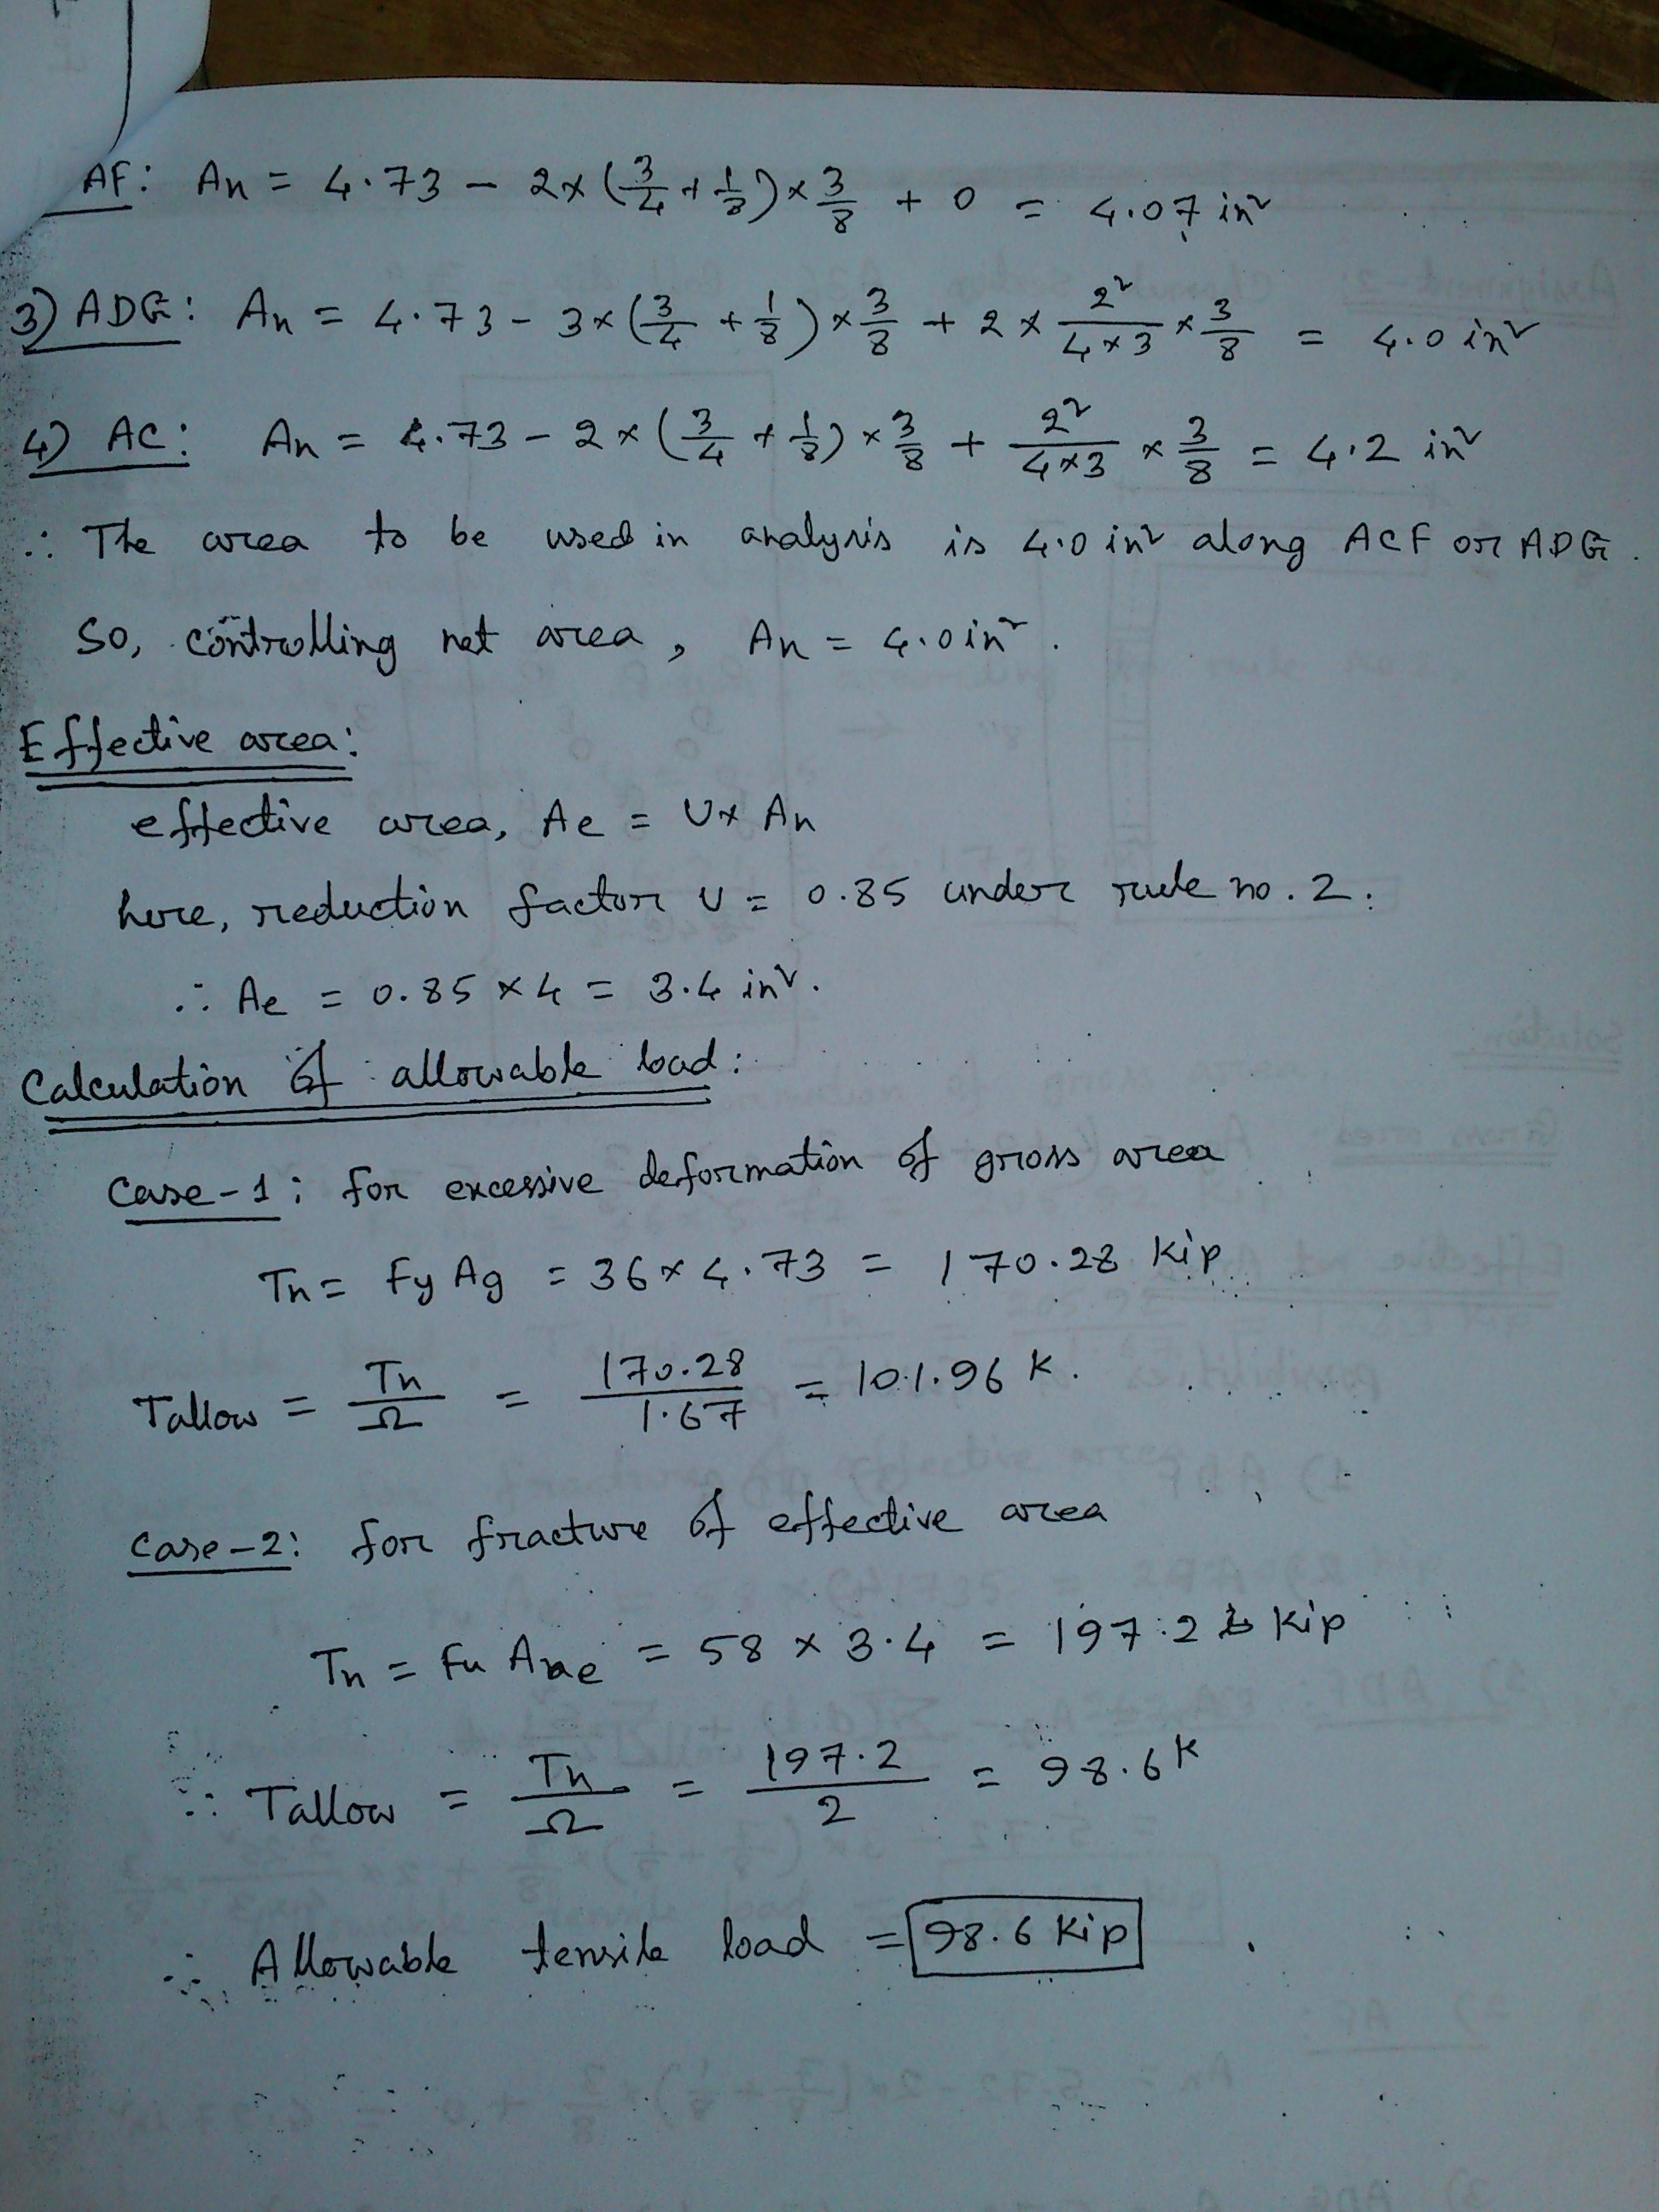 AF: An = 4.73 - 2×(3/4 + 1/8)×3/8 + 0 = 4.07 in²
3) ADG: An = 4.73 - 3×(3/4 + 1/8)×3/8 + 2× 2²/(4×3) ×3/8 = 4.0 in²
4) AC: An = 4.73 - 2×(3/4 + 1/8)×3/8 + 2²/(4×3) × 3/8 = 4.2 in²
∴ The area to be used in analysis is 4.0 in² along ACF or ADG.
So, controlling net area, An = 4.0 in².
Effective area:
effective area, Ae = U× An
here, reduction factor U = 0.85 under rule no. 2.
∴ Ae = 0.85 × 4 = 3.4 in².
Calculation of allowable load:
Case-1: for excessive deformation of gross area
Tn = Fy Ag = 36 × 4.73 = 170.28 Kip
Tallow = Tn/Ω = 170.28/1.67 = 101.96 K.
Case-2: for fracture of effective area
Tn = Fu Ae = 58 × 3.4 = 197.2 Kip
∴ Tallow = Tn/Ω = 197.2/2 = 98.6 K
∴ Allowable tensile load = 98.6 Kip